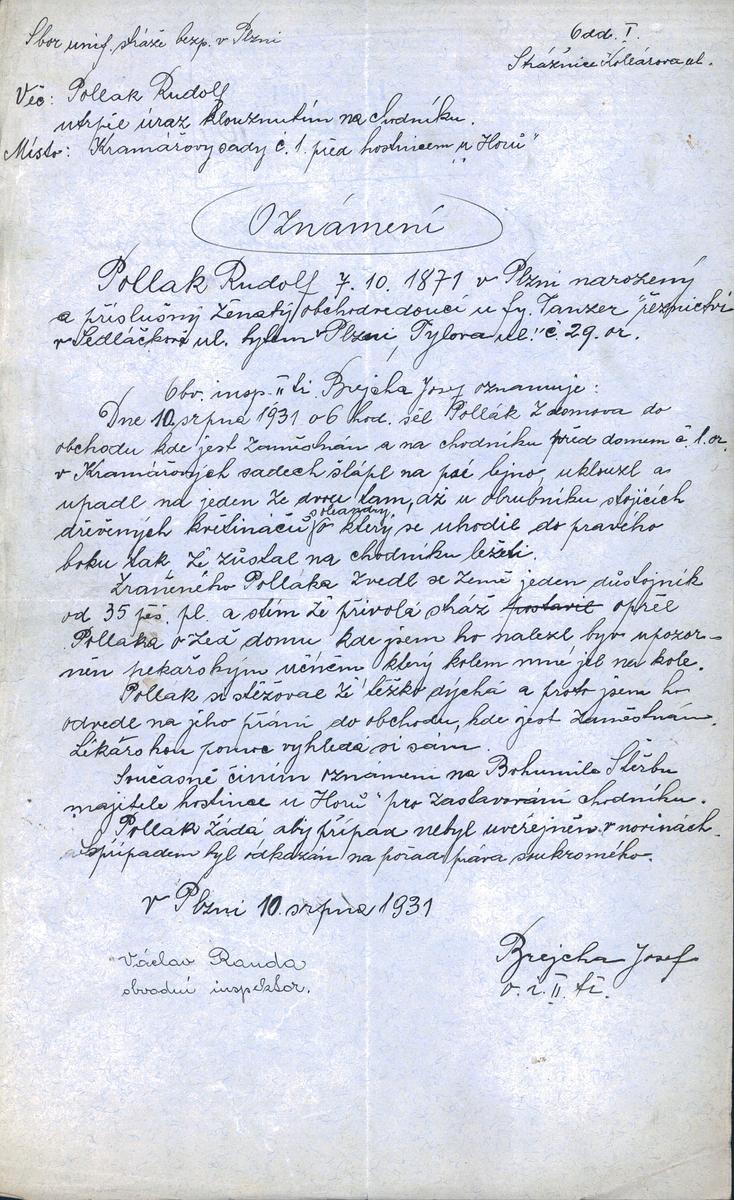 Sbor unif. stráže bezp. v Plzni
Odd. I.
Strážnice Kollárova ul.
Věc: Pollak Rudolf
utrpěl úraz klouznutím na chodníku.
Místo: Kramářovy sady č. 1. před hostincem „u Horů"
Oznámení
Pollak Rudolf 7. 10. 1871 v Plzni narozený
a příslušný ženatý, obchodvedoucí u fy. Tanzer "řeznictví
v Sedláčkově ul. bytem v Plzni, Tylova ul. č. 29. or.
Obv. insp. II tř. Brejcha Josef oznamuje:
Dne 10. srpna 1931 o 6 hod. šel Pollák z domova do
obchodu kde jest zaměstnán a na chodníku před domem č. 1. or.
v Kramářových sadech šlápl na psí lejno, uklouzl a
upadl na jeden ze dvou tam, až u obrubníku stojících
dřevěných květináčů s oleandry, o který se uhodil do pravého
boku tak že zůstal na chodníku ležeti.
Zraněného Polláka zvedl se země jeden důstojník
od 35 pěš. pl. a s tím že přivolá stráž postavil opřel
Polláka o zeď domu kde jsem ho nalezl byv upozor-
něn pekařským učněm který kolem mně jel na kole.
Pollak si stěžoval že těžko dýchá a proto jsem ho
odvedl na jeho přání do obchodu, kde jest zaměstnán.
Lékařskou pomoc vyhledá si sám.
Současně činím oznámení na Bohumila Štěrbu
majitele hostince „u Horů" pro zastavování chodníku.
Pollák žádá aby případ nebyl uveřejněn v novinách.
S případem byl odkázán na pořad práva soukromého.
V Plzni 10. srpna 1931
Václav Randa
obvodní inspektor.
Brejcha Josef
o. i. II. tř.